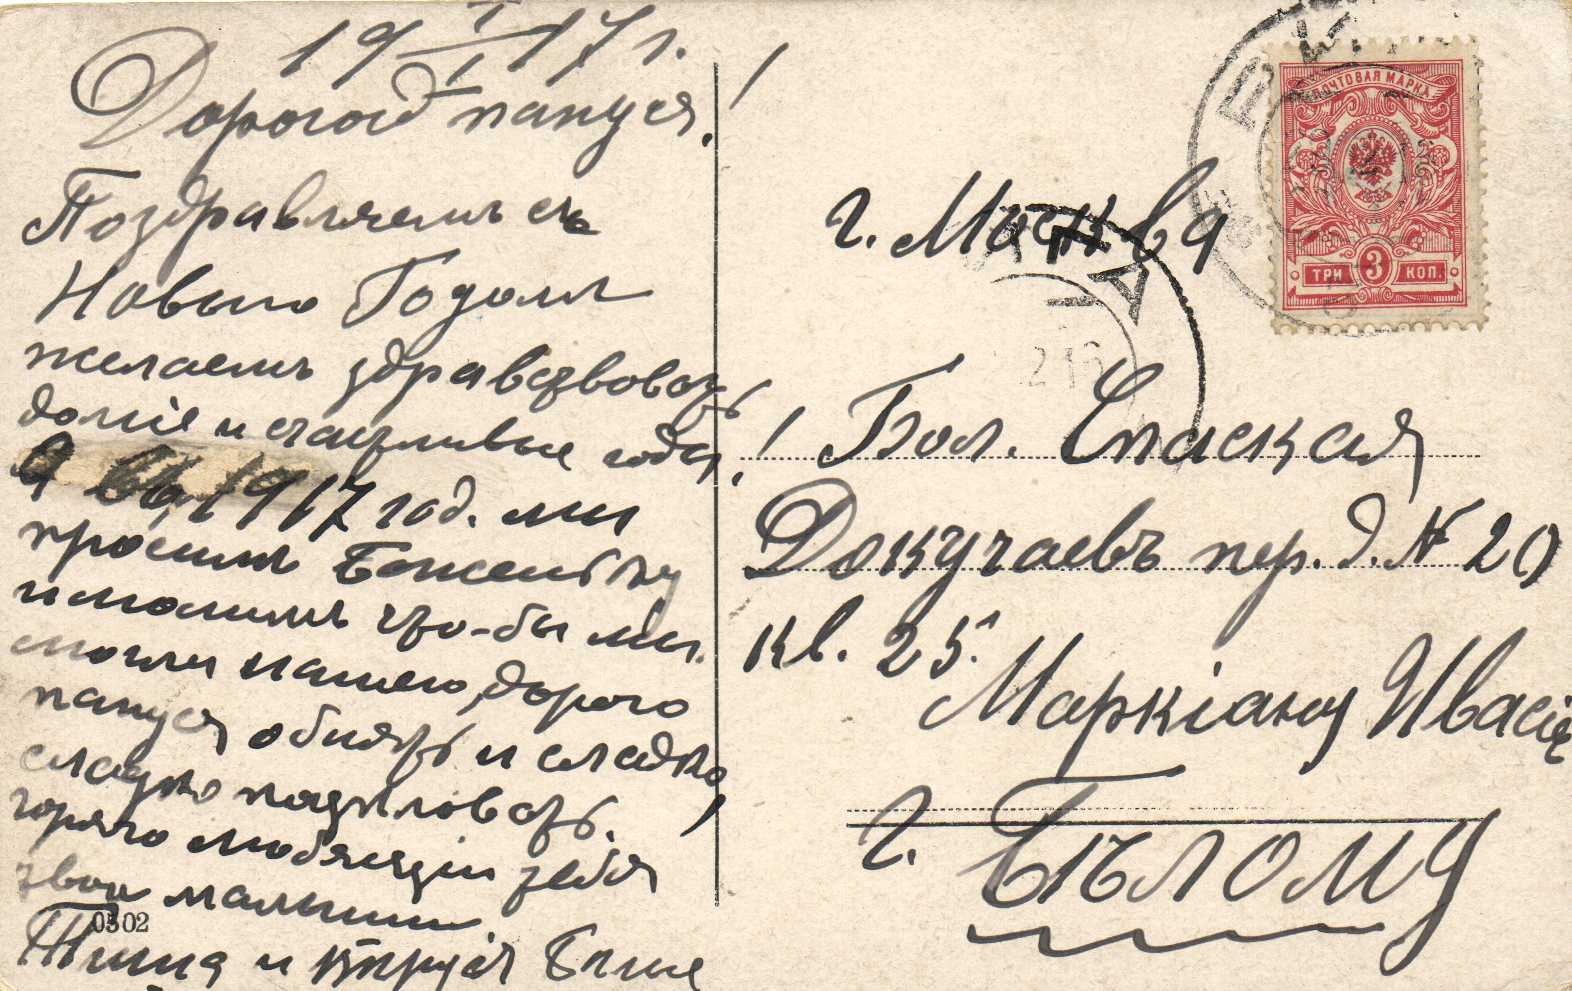 19 I/I 17 г.
Дорогой папуся!
Поздравляемъ съ
Новымъ Годомъ
желаемъ здравствовать
долгіе и счастливые года!
А въ 1917 год. мы
просимъ Боженьку
и молимъ что-бы мы
могли нашего, дорого
папуся обнять и сладко,
сладко поцѣловать.
горячо любящіи тебя
твои малыши
Тиша и Бѣлые
0502
ПОЧТОВАЯ МАРКА
ТРИ 3 КОП.
г. Москва
Бол. Спаская
Докучаевъ пер. д. № 20
кв. 25.
Маркіану Ивасіе
г. Бѣлому